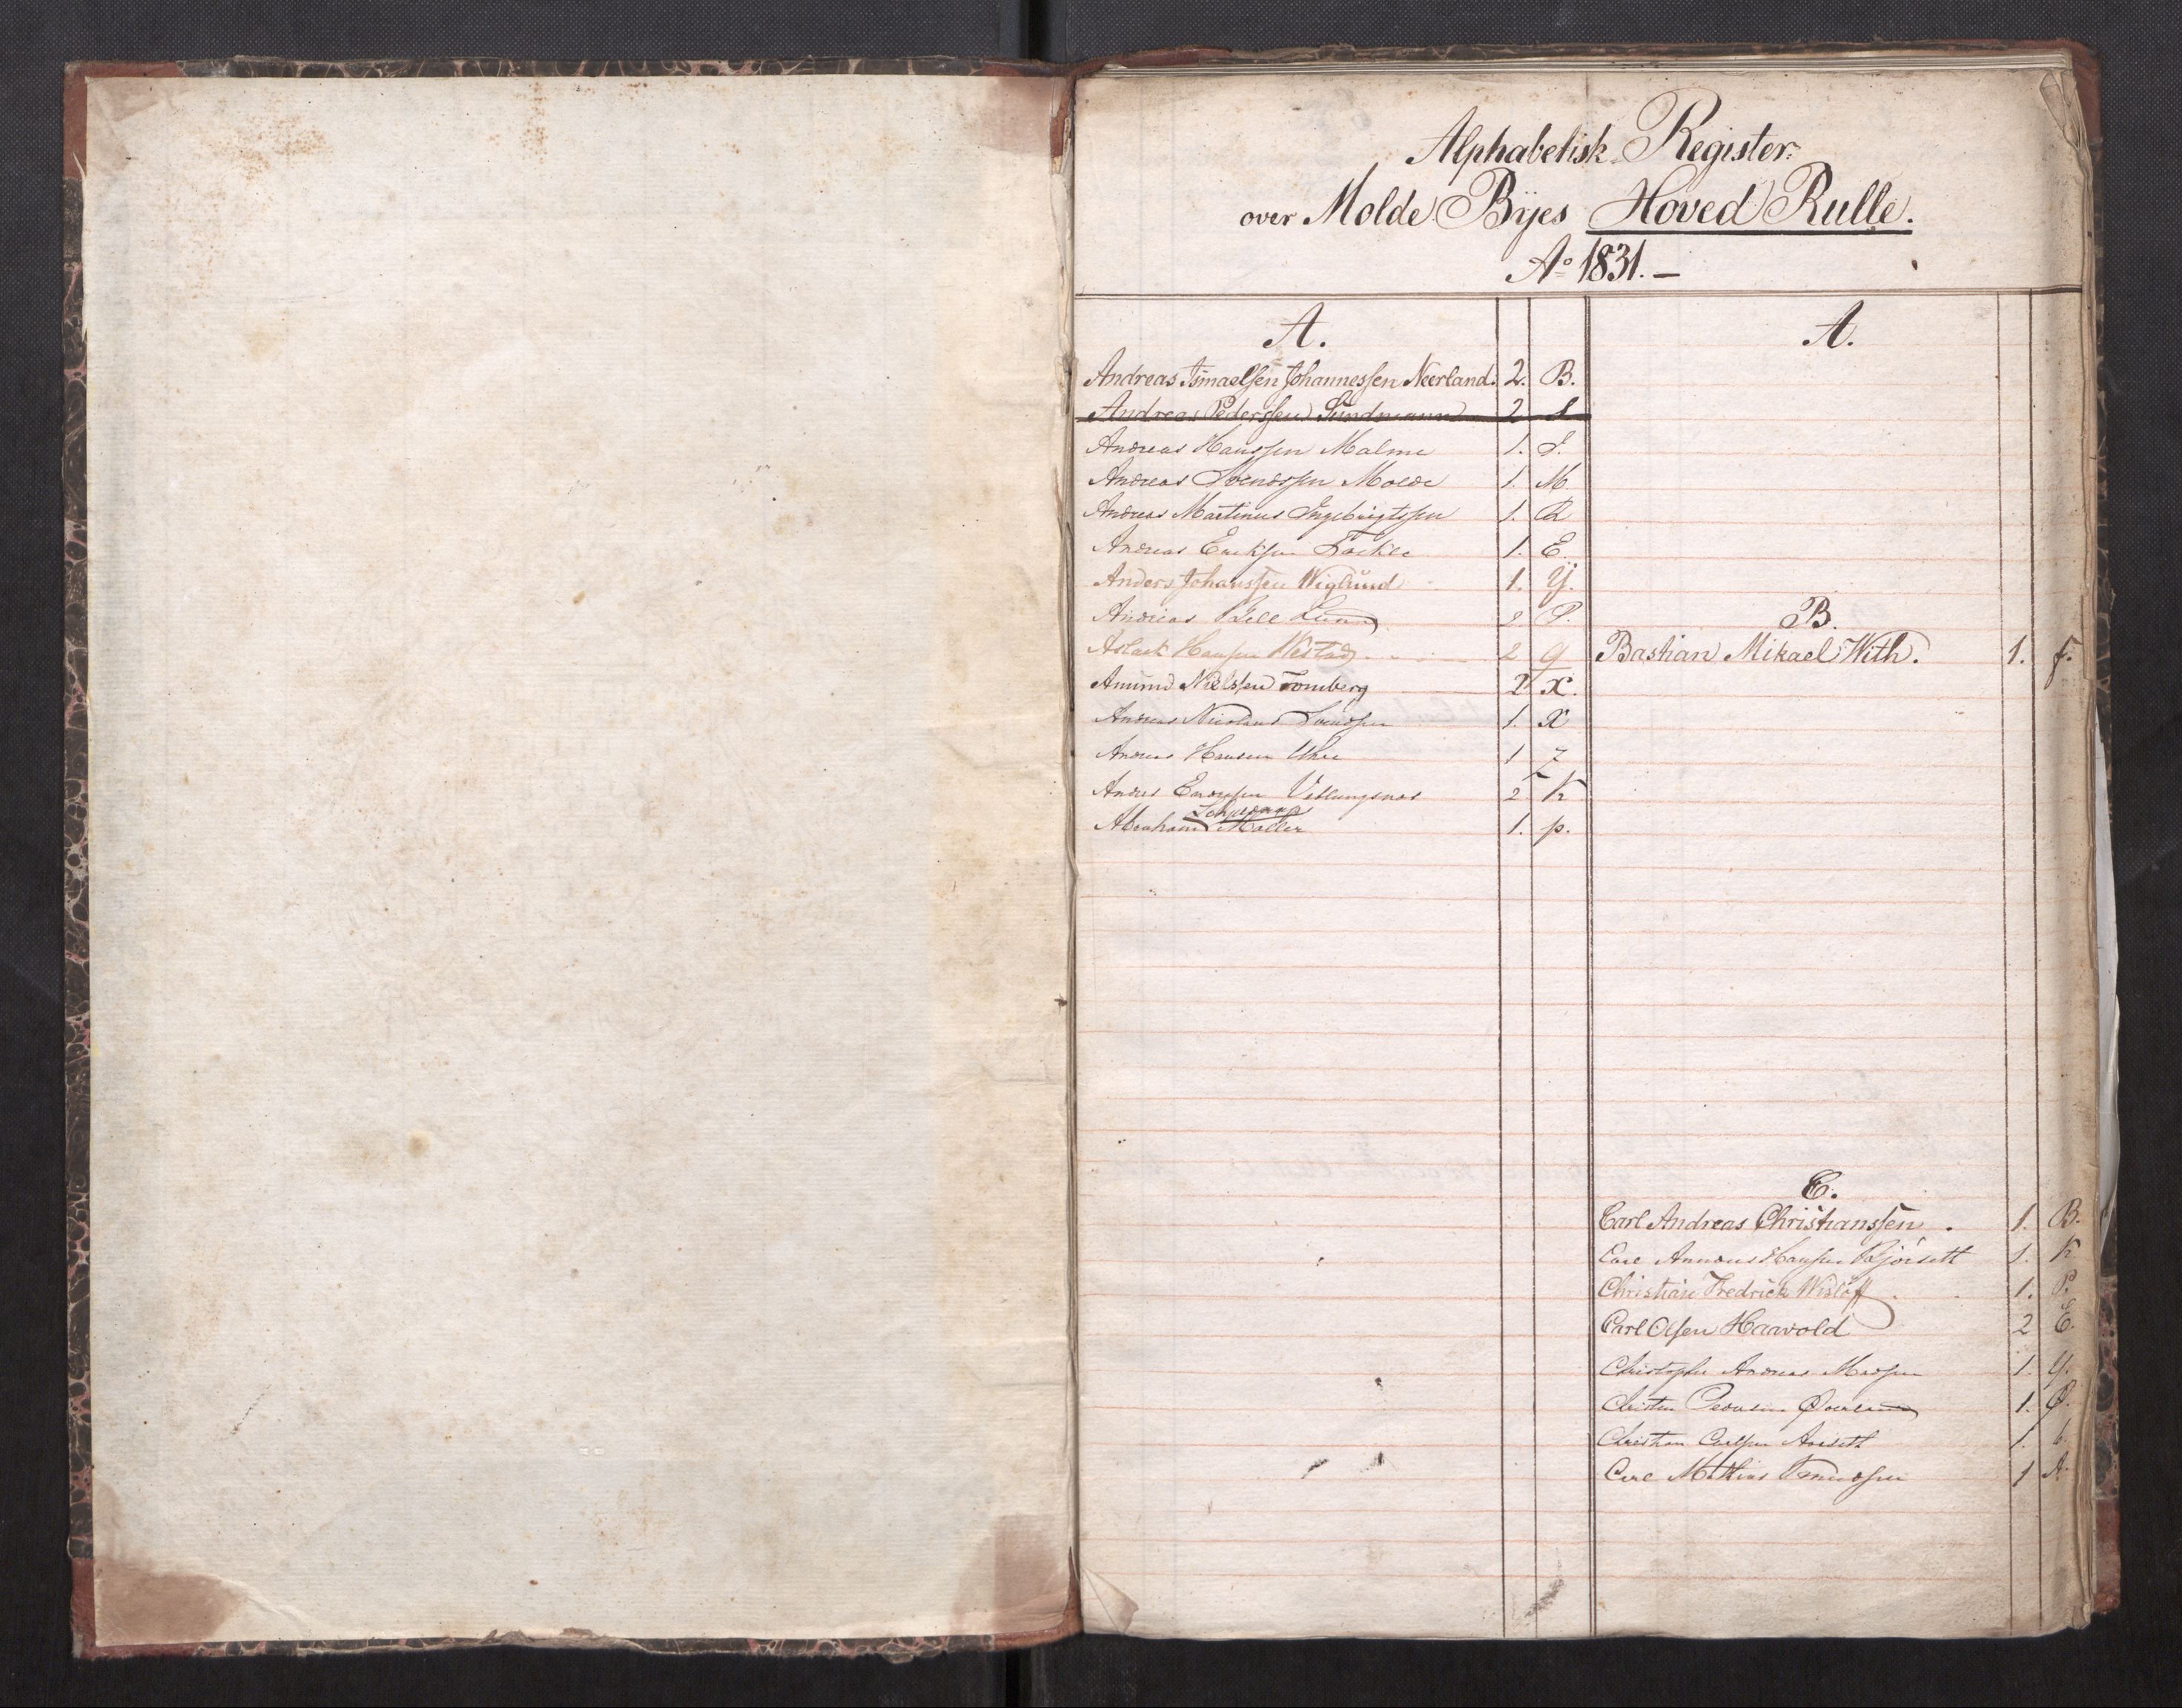 Alphabetisk Register
over Molde Byes Hoved Rulle.
Aº 1831.—
A.
Andreas Ismaelsen Johannessen Neerland. 2. B.
Andreas Pederssen Sundmann 2
Andreas Hanssen Malme 1. J.
Andreas Svendssen Molde 1. M
Andreas Martinus Ingebrigtssen 1. R
Andreas Erikssen 1. E.
Anders Johanssen Wiglund 1. Y.
Andreas Lund 2 P.
Aslack Hansen Westad 2 q
Amund Nielssen Tomberg 2 X.
Andreas Nicolaus Svendsen 1. X
Andreas Hansen 1 Z
Anders Veblungsnes 2 K
Abraham Møller 1. p.
A.
B.
Bastian Mikael With. 1. f.
C.
Carl Andreas Christianssen. 1. B.
Carl Hansen Bjørsett 1. K
Christian Fredrick Wisløff 1. P.
Carl Olsen Haavold 2 E.
Christopher Andreas Madsen 1. Y.
Christen Pedersen 1. Ø.
Christian Carlsen Aarseth 1.
Carl Mathias 1 A.